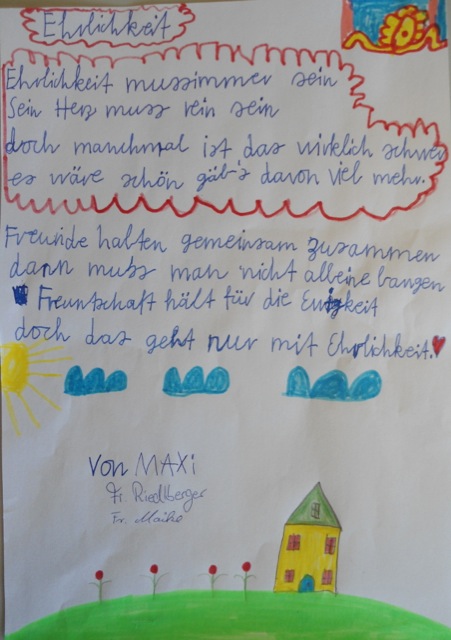 Ehrlichkeit
Ehrlichkeit mussimmer sein
Sein Herz muss rein sein
doch manchmal ist das wirklich schwer
es wäre schön gäb's davon viel mehr.
Freunde halten gemeinsam zusammen
dann muss man nicht alleine bangen
Freuntschaft hält für die Ewigkeit
doch das geht nur mit Ehrlichkeit.
von MAXi
Fr. Riedlberger
Fr. Maiko